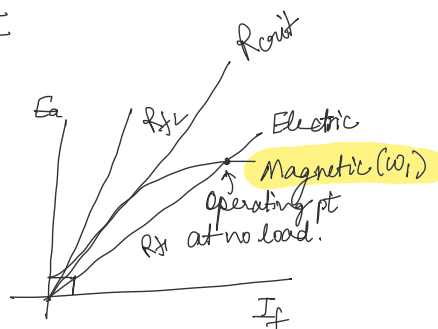 Rcrit
Ea
Rf2
Electric
Magnetic (ω₁)
Operating pt
at no load.
Rf1
If